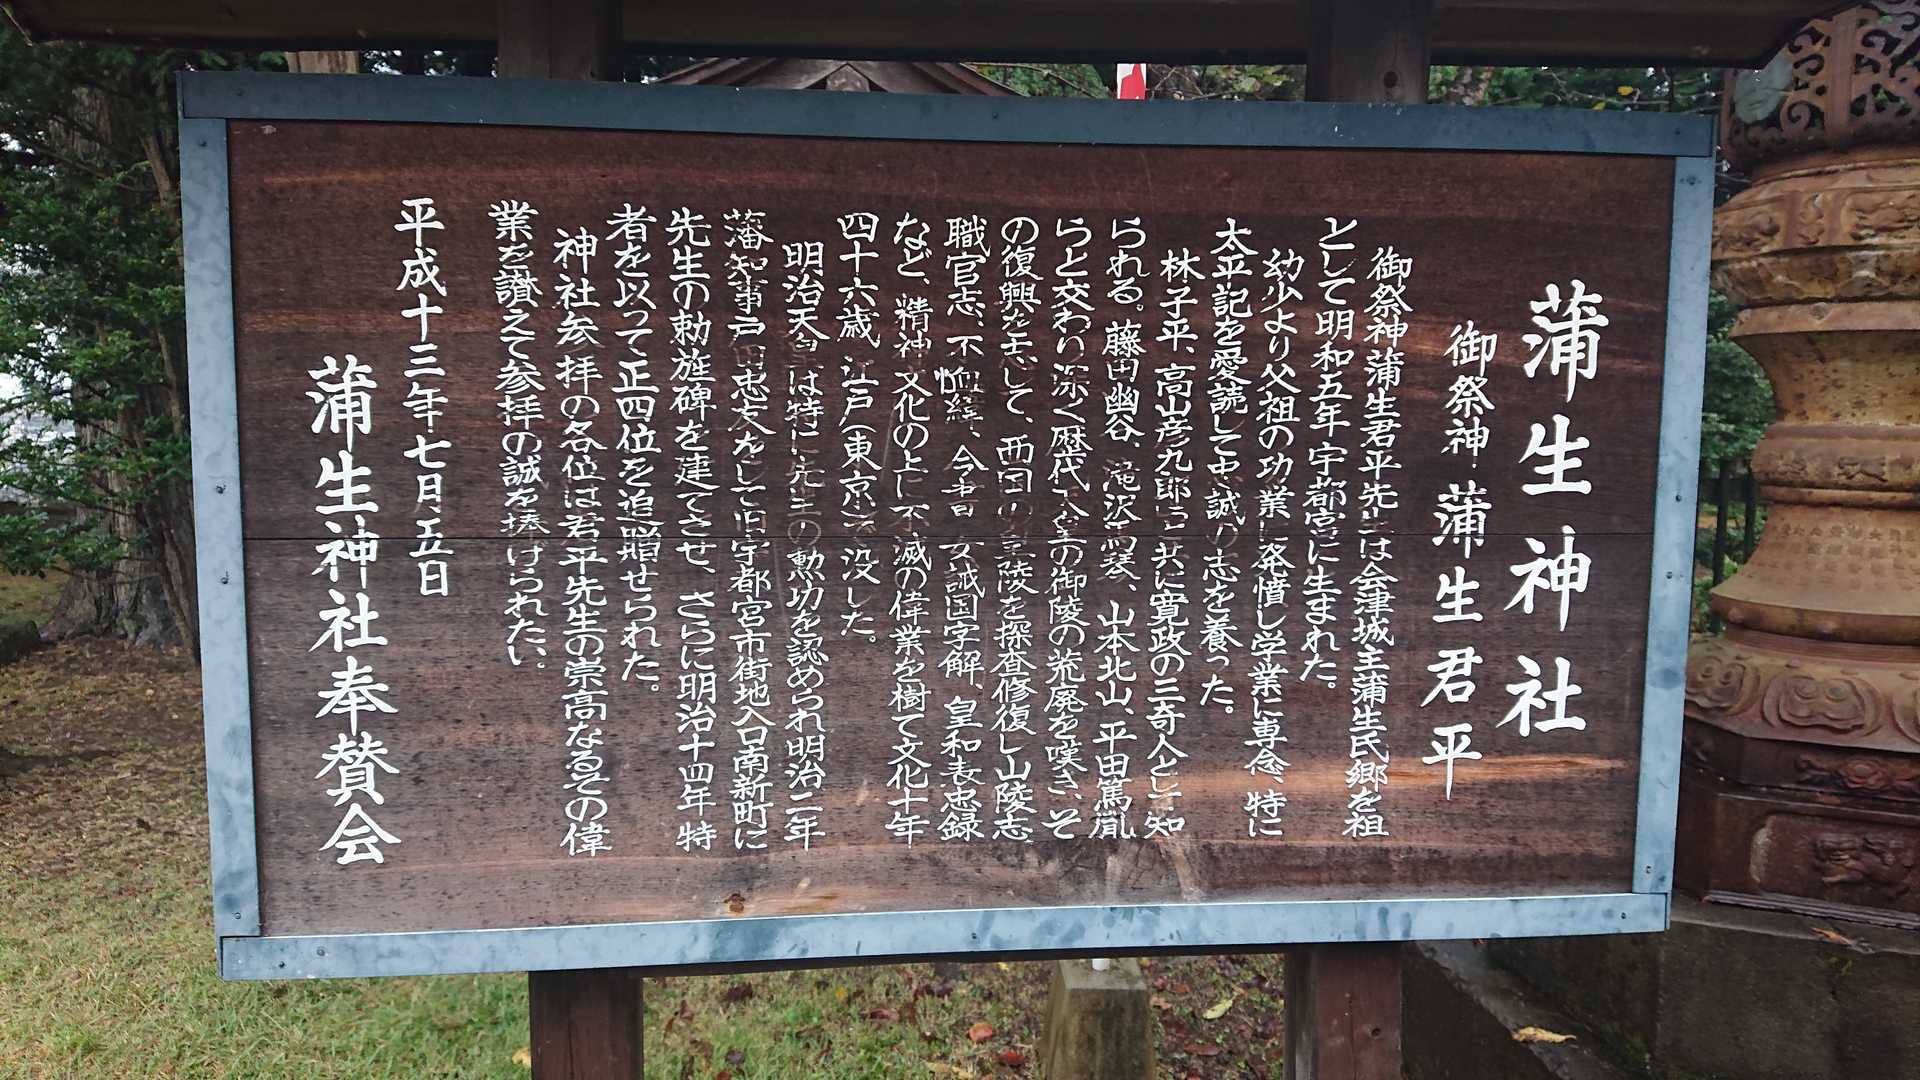 蒲生神社
御祭神 蒲生君平
御祭神蒲生君平先生は会津城主蒲生氏郷を祖
として明和五年宇都宮に生まれた。
幼少より父祖の功業に発憤し学業に専念、特に
太平記を愛読して忠誠の志を養った。
林子平、高山彦九郎らと共に寛政の三奇人として知
られる。藤田幽谷、滝沢馬琴、山本北山、平田篤胤
らと交わり深く歴代天皇の御陵の荒廃を嘆き、そ
の復興を志して、西国の皇陵を探査修復し山陵志
職官志、不恤緯、今書、女誡国字解、皇和表忠録
など、精神文化の上に不滅の偉業を樹て文化十年
四十六歳 江戸(東京)で没した。
明治天皇は特に先生の勲功を認められ明治二年
藩知事戸田忠友をして旧宇都宮市街地入口南新町に
先生の勅旌碑を建てさせ、さらに明治十四年特
者を以って正四位を追贈せられた。
神社参拝の各位は君平先生の崇高なるその偉
業を讃えて参拝の誠を捧げられたい。
平成十三年七月五日
蒲生神社奉賛会